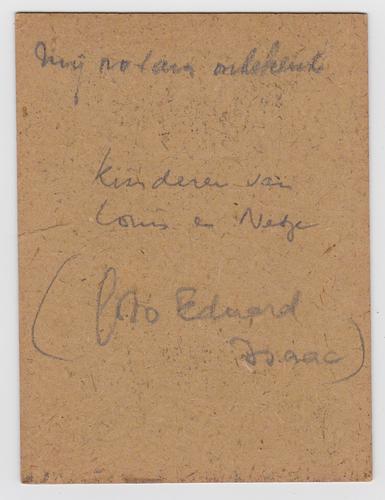 mij totaal onbekend
kinderen van
Louis en Netje
(foto Eduard
Isaac)